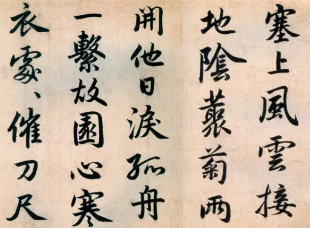 塞上風雲接
地陰藂菊兩
開他日淚孤舟
一繫故園心寒
衣處〻催刀尺